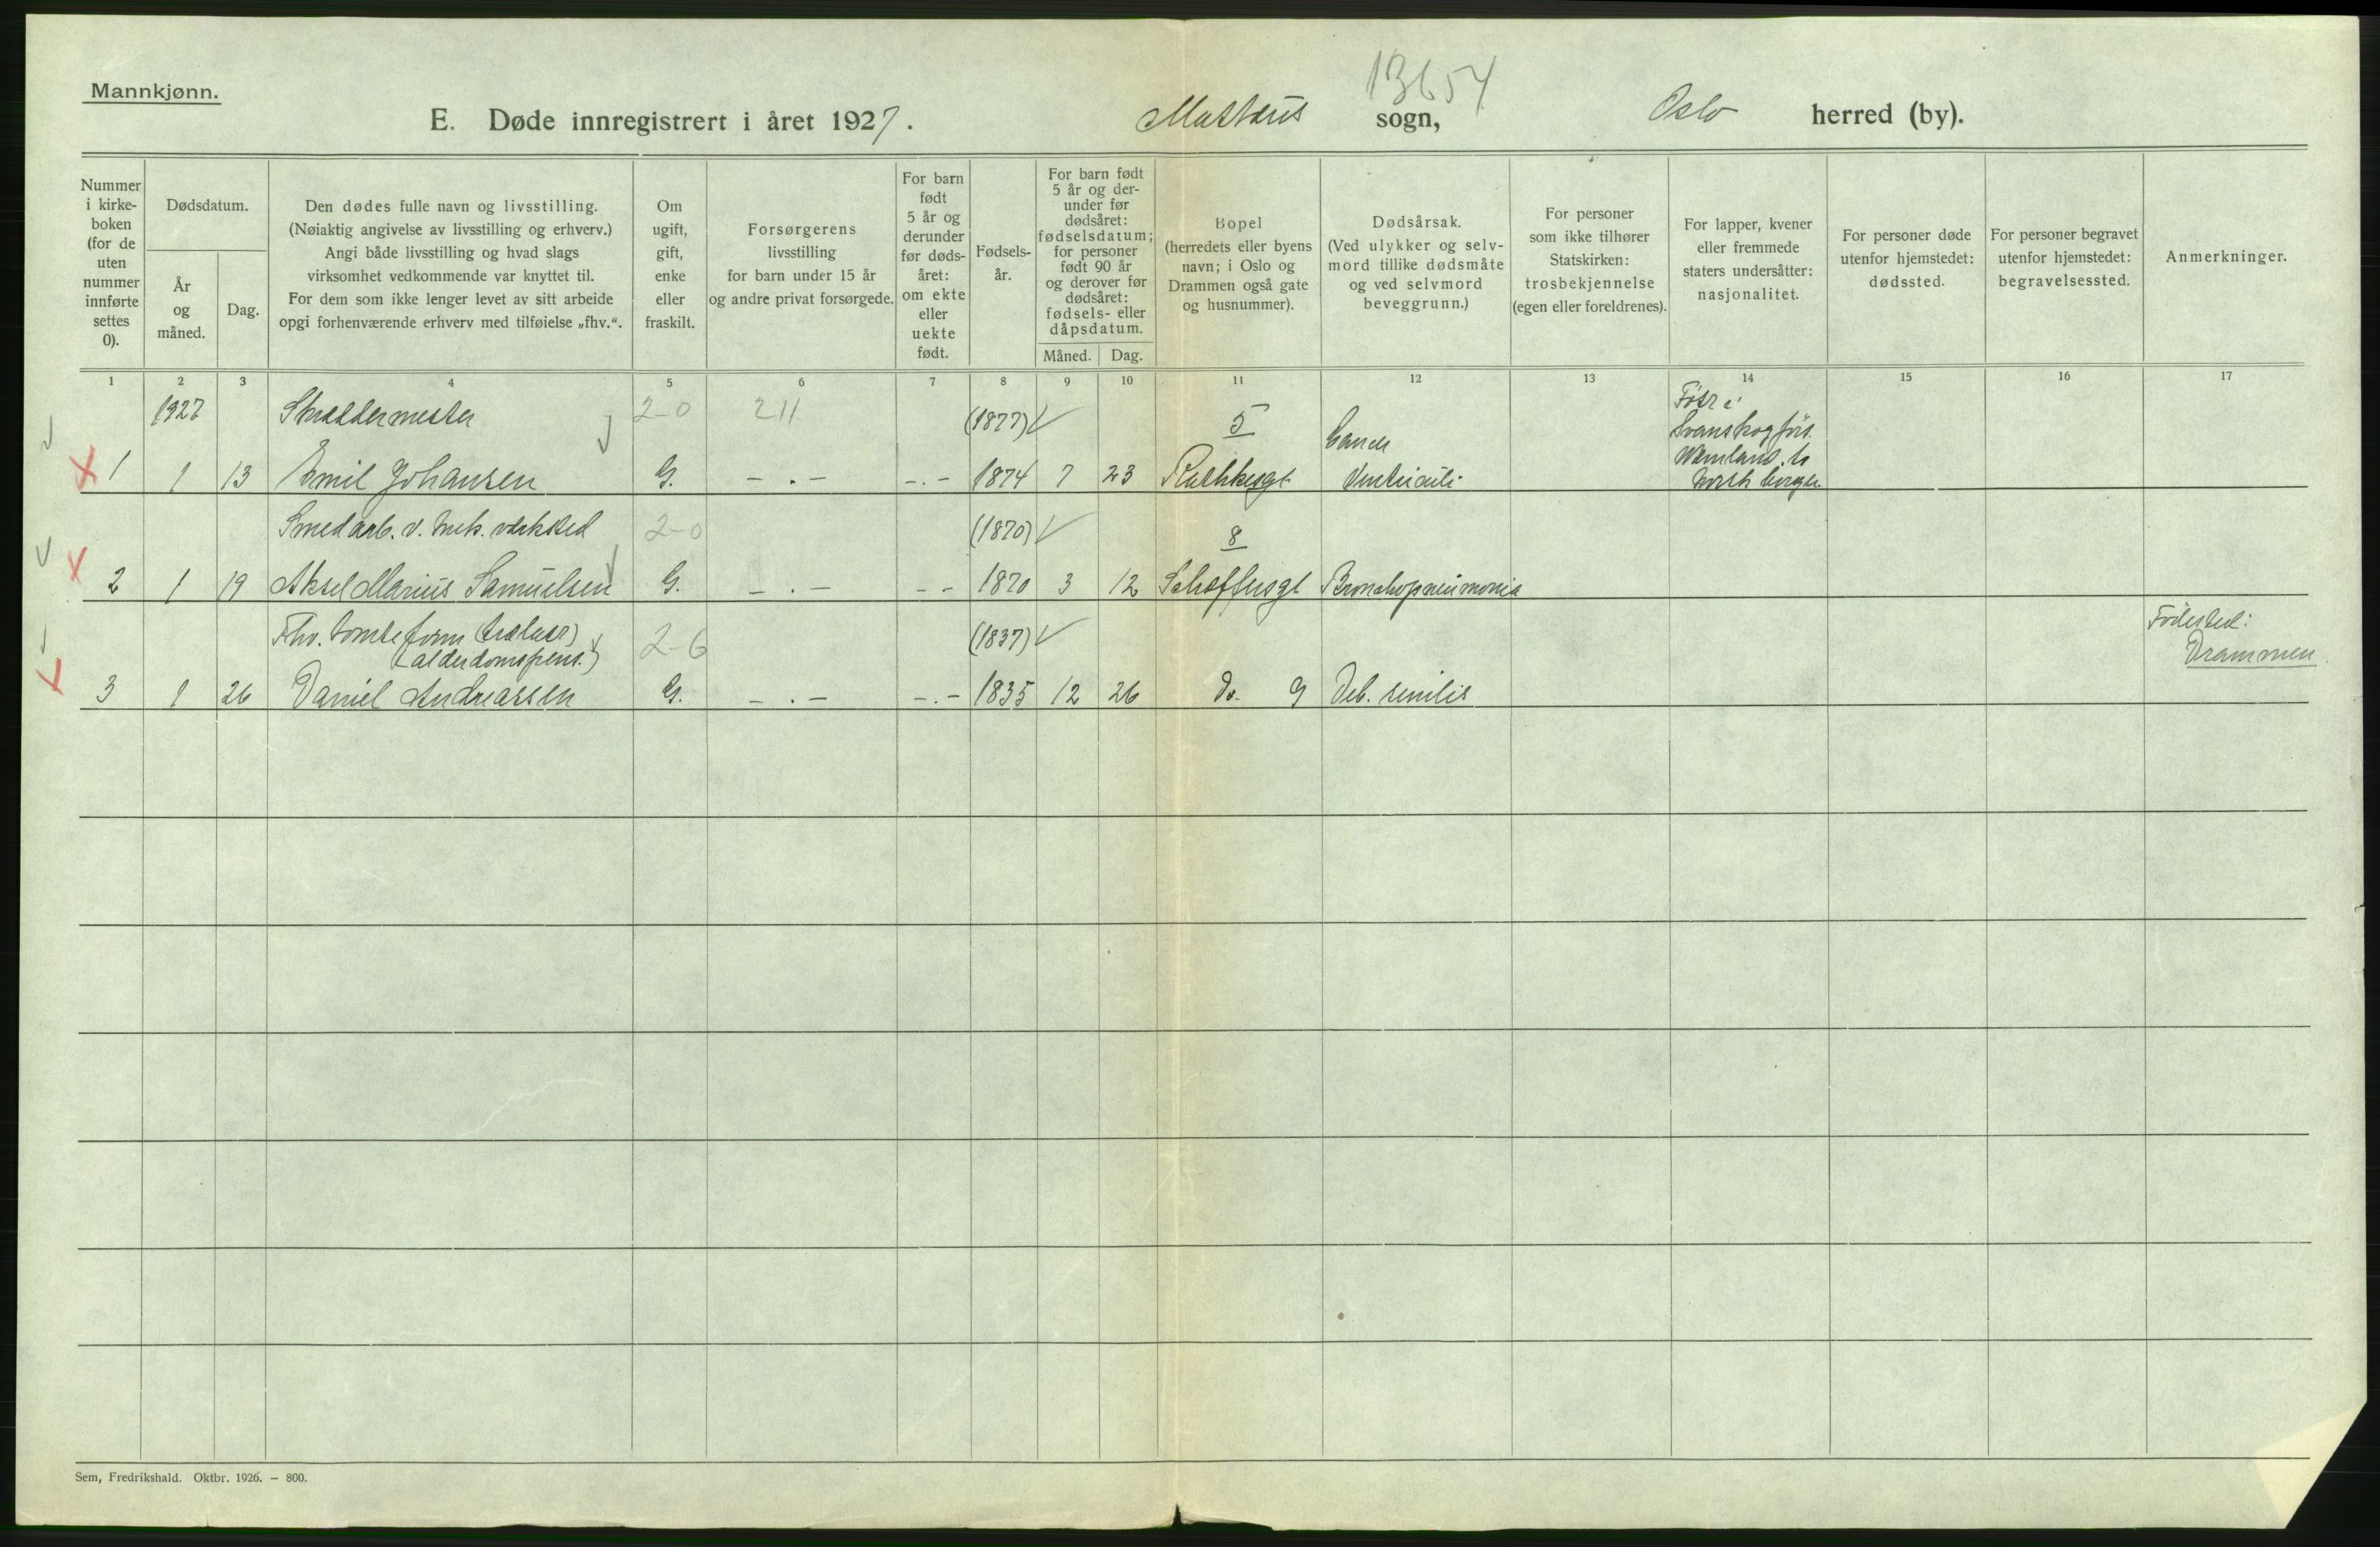 Mannkjønn.
13654
E. Døde innregistrert i året 1927. Mattæus sogn, Oslo herred (by).
Nummer i kirke-boken (for de uten nummer innførte settes 0).
Dødsdatum.
År og måned.
Dag.
Den dødes fulle navn og livsstilling.
(Nøiaktig angivelse av livsstilling og erhverv.)
Angi både livsstilling og hvad slags
virksomhet vedkommende var knyttet til.
For dem som ikke lenger levet av sitt arbeide
opgi forhenværende erhverv med tilføielse „fhv.“.
Om ugift, gift, enke eller fraskilt.
Forsørgerens
livsstilling
for barn under 15 år
og andre privat forsørgede.
For barn født 5 år og derunder før døds-året: om ekte eller uekte født.
Fødsels-år.
For barn født 5 år og der-under før dødsåret: fødselsdatum; for personer født 90 år og derover før dødsåret: fødsels- eller dåpsdatum.
Måned.
Dag.
Bopel
(herredets eller byens
navn; i Oslo og
Drammen også gate
og husnummer).
Dødsårsak.
(Ved ulykker og selv-
mord tillike dødsmåte
og ved selvmord
beveggrunn.)
For personer
som ikke tilhører
Statskirken:
trosbekjennelse
(egen eller foreldrenes).
For lapper, kvener
eller fremmede
staters undersåtter:
nasjonalitet.
For personer døde
utenfor hjemstedet:
dødssted.
For personer begravet
utenfor hjemstedet:
begravelsessted.
Anmerkninger.
1 2 3 4 5 6 7 8 9 10 11 12 13 14 15 16 17
1927 Skræddermester 2-0 211 (1877) 5 Cancer Født i
Svanskog förs.
Wermland,
norsk borger
1 1 13 Emil Johansen G. - . - - . - 1874 7 23 Rathkesgt Ventriculi
Smedarb. v. mek. verksted 2-0 (1870) 8
2 1 19 Aksel Marius Samuelsen G. - . - - - 1870 3 12 Schæffersgt Bronchopneumonia
Fhv. tomteform (trælast) 2-6 (1837) Födested:
(alderdomspens.) Drammen.
3 1 26 Daniel Andreassen G. - . - - . - 1835 12 26 Do. 9 Deb. senilis
Sem, Fredrikshald. Oktbr. 1926. — 800.